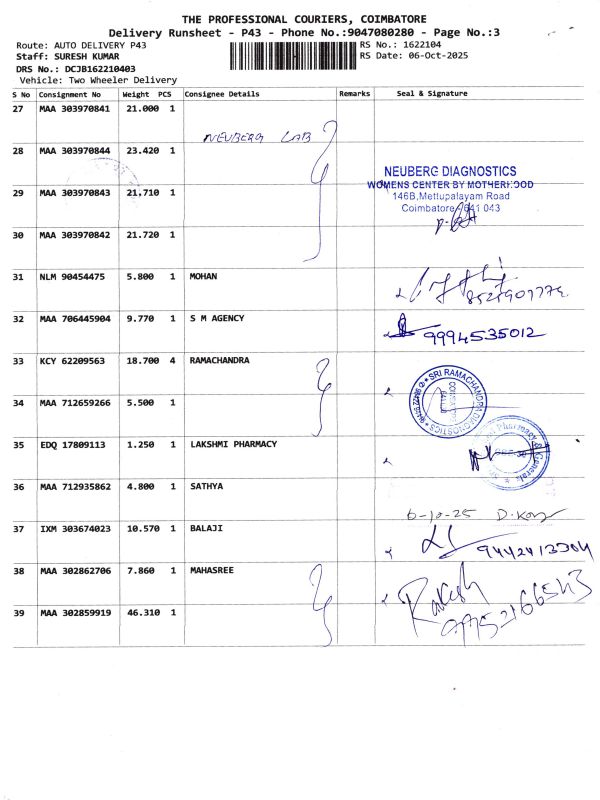 THE PROFESSIONAL COURIERS, COIMBATORE
Delivery Runsheet - P43 - Phone No.:9047080280 - Page No.:3
Route: AUTO DELIVERY P43 RS No.: 1622104
Staff: SURESH KUMAR RS Date: 06-Oct-2025
DRS No.: DCJB162210403
Vehicle: Two Wheeler Delivery
S No Consignment No Weight PCS Consignee Details Remarks Seal & Signature
27 MAA 303970841 21.000 1
NEUBERG LAB
28 MAA 303970844 23.420 1
NEUBERG DIAGNOSTICS
WOMENS CENTER BY MOTHERHOOD
29 MAA 303970843 21.710 1
146B,Mettupalayam Road
Coimbatore-641 043
30 MAA 303970842 21.720 1
31 NLM 90454475 5.800 1 MOHAN
32 MAA 706445904 9.770 1 S M AGENCY
9994535012
33 KCY 62209563 18.700 4 RAMACHANDRA
SRI RAMACHANDRA DIAGNOSTICS
34 MAA 712659266 5.500 1
35 EDQ 17809113 1.250 1 LAKSHMI PHARMACY
Pharmacy & Generals
36 MAA 712935862 4.800 1 SATHYA
6-10-25
37 IXM 303674023 10.570 1 BALAJI
38 MAA 302862706 7.860 1 MAHASREE
Rakesh
39 MAA 302859919 46.310 1